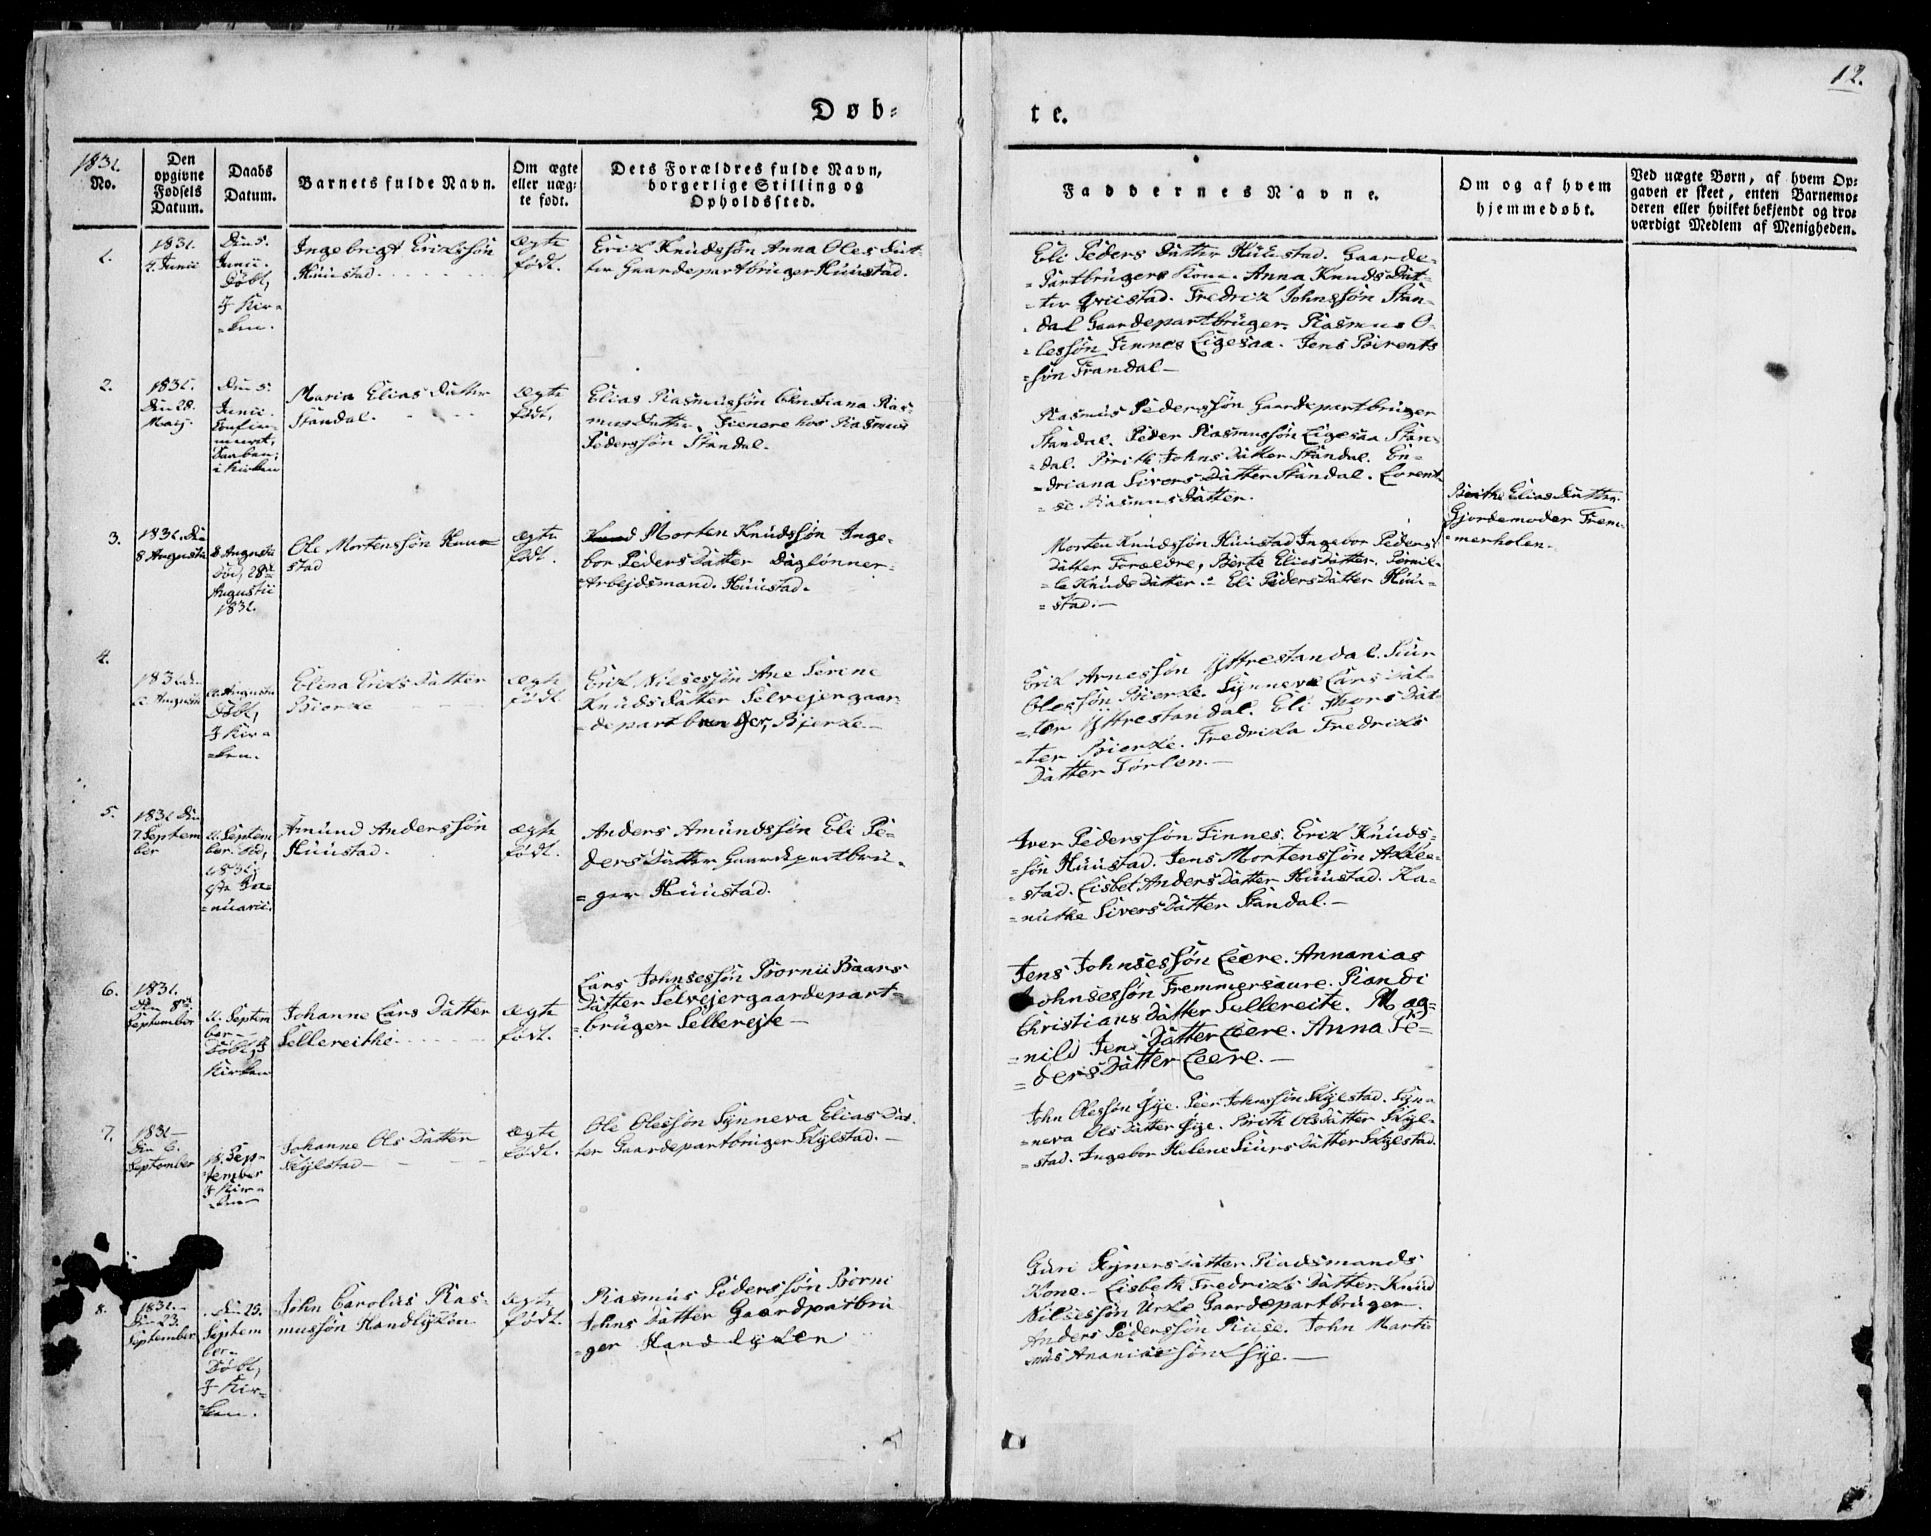 12.
Døb=
te.
1831.
No.
Den
opgivne
Fødsels
Datum.
Daabs
Datum.
Barnets fulde Navn.
Om ægte
eller uæg-
te født.
Dets Forældres fulde Navn,
borgerlige Stilling og
Opholdssted.
Faddernes Navne.
Om og af hvem
hjemmedøbt.
Ved uægte Børn, af hvem Op-
gaven er skeet, enten Barnemo-
deren eller hvilket bekjendt og tro-
værdigt Medlem af Menigheden.
1.
1831.
Junii
Den 5.
Junii.
Døbt,
I Kir=
=ken.
Ingebrigt Erikssøn
Huustad.
ægte
født.
Erik Knudssøn Anna Oles Dat
ter Gaardepartbruger Huustad.
Eli Peders Datter Huustad. Gaarde=
=Partbrugers Kone. Anna Knuds Dat=
=ter Qviistad. Fredrik Johnssøn Stan=
=dal Gaardepartbruger. Rasmus O=
=lessøn Finnes Ligesaa. Jens Beirents
søn Trandal—
2.
1831.
Den 28.
Maij.
Den 5.
Junii.
Confir=
meret,
Daaben
i Kirken
Maria Elias Datter
Standal.
ægte
født.
Elias Rasmussøn Christiana Ras=
mus Datter, Tienere hos Rasmus
Pederssøn Standal.
Rasmus Pederssøn Gaardepartbruger
Standal. Peder Rasmussøn Ligesaa Stan=
=dal. Birite Johns Datter Standal. En=
=driana Sivers Datter Standal. Lorent=
=se Rasmus Datter.
Berthe Elias Datter.
Gjordemoder Frem=
=merholen.
3.
1831. Den
8 Augustii
8 Augustii
Død, 28de
Augustii
1831.
Ole Mortenssøn Huu=
stad
ægte
født.
Morten Knudssøn Inge=
bor Peders Datter Daglønner=
Arbejdsmand. Huustad.
Morten Knudssøn Huustad Ingebor Peders
Datter Forældre, Berte Elias Datter. Pernil=
=le Knuds Datter. Eli Peders Datter Huu=
=stad.—
4.
Augustii
Augustii
Døbt,
I Kir=
=ken.
Elina Eriks Datter
Bierke
ægte
født
Erik Nilsessøn Ane Serine
Knuds Datter Selvejergaar=
=departbruger, Bjerke.—
Erik Arnessøn Yttrestandal. Siur
Olessøn Bierke. Synneve Lars Dat=
=ter Yttrestandal. Eli Thors Dat=
=ter Bierke. Fredrika Fredriks
Datter Sørlen.—
5.
1831 Den
7 Septem
ber
11. Septem
ber. Død,
1831.
Ja=
=nuarii.
Amund Anderssøn
Huustad.
ægte
født.
Anders Amundssøn Eli Pe=
ders Datter Gaardepartbru=
=ger Huustad.
Iver Pederssøn Finnes. Erik Knuds=
=søn Huustad. Jens Mortenssøn Akle=
=stad. Lisbet Anders Datter Huustad. Ka=
=nutke Sivers Datter Standal.—
6.
1831.
Den 8de
September
11. Septem
ber
Døbt, I
Kirken
Johanne Lars Datter
Sellereithe.
ægte
født.
Lars Johnsessøn Bornii Baars
Datter Selvejergaardepart=
=bruger Sellerejte—
Jens Johnsessøn Leere. Annanias
Johnsessøn Fremmersaure. Randi
Christians Datter Sellereite. Mag=
=nild Jens Datter Leere. Anna Pe=
=ders Datter Leere.—
7.
1831—
Den 6.
September
18. Sep=
=tember
I Kir=
ken
Johanne Ols Datter
Skylstad—
ægte
født.
Ole Olessøn Synneva Elias Dat=
ter Gaardepartbruger Skylstad.—
John Olessøn Øye. Peer Johnssøn Skylestad. Syn=
=neva Ols Datter Øye. Brith Ols Datter Skyl=
=stad. Ingebor Helene Siurs Datter Skylestad.
8.
1831—
Den 23.
September
Den 25.
Septem
ber.
Døbt,
I Kir=
ken.
John Carolus Ras=
mussøn Handlyken
ægte
født.
Rasmus Pederssøn Borni
Johns Datter Gaardpartbru
=ger Handlyken
Guri Rejners Datter Raadsmands
Kone.— Lisbeth Fredriks Datter. Knud
Nilsessøn Urke Gaardepartbruger.
Anders Pederssøn Riise. John Marti
nus Ananiassøn Øye.—